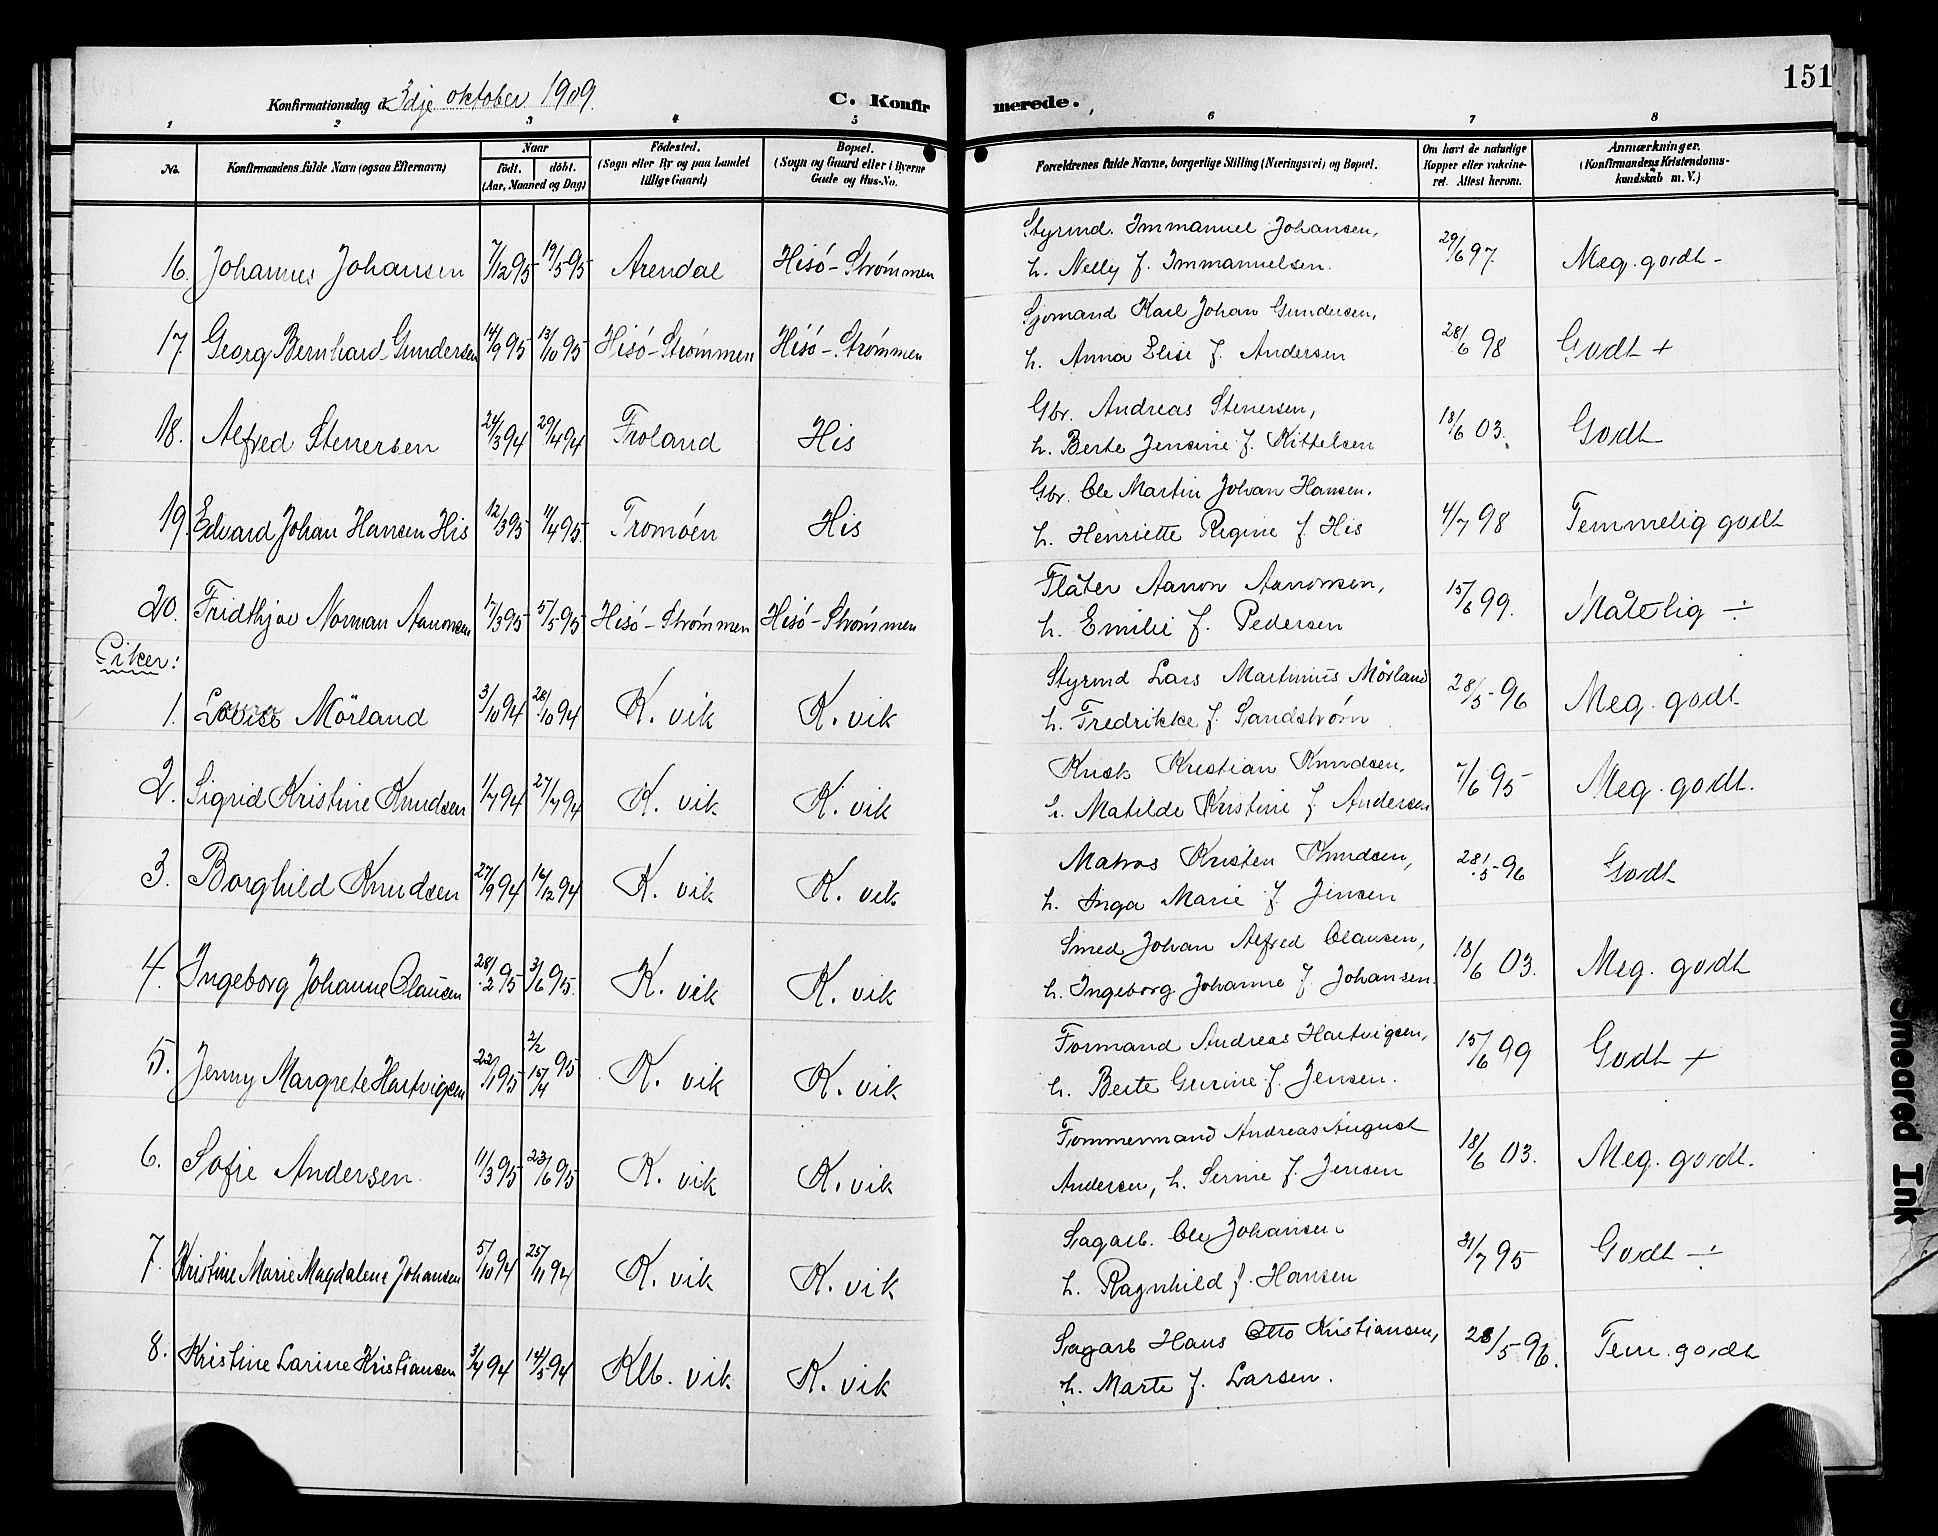 151
Konfirmationsdag d. 3dje oktober 1909. C. Konfirmerede.
1 2 3 4 5 6 7 8
No. Konfirmandens fulde Navn (ogsaa Efternavn) Naar født. døbt. (Aar, Maaned og Dag) Fødested. (Sogn eller By og paa Landet tillige Gaard) Bopæl. (Sogn og Gaard eller i Byerne Gade og Hus-No. Forældrenes fulde Navne, borgerlige Stilling (Næringsvei) og Bopæl. Om havt de naturlige Kopper eller vaksineret. Attest herom. Anmærkninger. (Konfirmandens Kristendomskundskab m. V.)
16. Johannes Johansen 7/12 95 19/5 95 Arendal Hisö-Strømmen Styrmd. Immanuel Johansen, 29/6 97. Meg. godt -
h. Nelly f. Immanuelsen.
17. Georg Bernhard Gundersen 14/9 95 13/10 95 Hisö-Strømmen Hisö-Strømmen Sjömand Karl Johan Gundersen, 28/6 98 Godt +
h. Anna Elise f. Andersen
18. Alfred Stenersen 24/3 94 29/4 94 Froland His Gbr. Andreas Stenersen, 18/6 03. Godt
h. Berte Jensine f. Kittelsen
19. Edvard Johan Hansen His 12/3 95 11/4 95. Tromöen His Gbr. Ole Martin Johan Hansen. 4/7 98 Temmelig godt
h. Henriette Regine f. His
20. Fridthjov Norman Aanonsen 17/3 95 5/5 95 Hisö-Strømmen Hisö-Strømmen Flåter Aanon Aanonsen, 15/6 99. Måtelig ÷
h. Emilie f. Pedersen
Piker:
1. Mörland 3/10 94 28/10 94 K. vik K. vik Styrmd Lars Martinius Mörland 28/5-96 Meg. godt
h. Fredrikke f. Sandström
2. Sigrid Kristine Knudsen 1/7 94 27/7 94 K. vik K. vik Kristian Knudsen, 7/6 95 Meg. godt.
h. Matilde Kristine f Andersen
3. Borghild Knudsen 27/9 94 16/12 94 K. vik K. vik Matros Kristen Knudsen, 28/5-96 Godt
h. Inga Marie f. Jensen
4. Ingeborg Johanne Clausen 28/2 95 3/6 95. K. vik K. vik Smed Johan Alfred Clausen, 18/6 03. Meg. godt
h. Ingeborg Johanne f. Johansen.
5. Jenny Margrete Hartvigsen 22/1 95 2/2 15/4 95 K. vik K. vik Formand Andreas Hartvigsen, 15/6 99 Godt +
h. Berte Gurine f. Jensen.
6. Sofie Andersen 11/3 95 23/6 95 K. vik K. vik Tommermand Andreas August 18/6 03. Meg. godt.
Andersen, h. Serine f. Jensen
7. Kristine Marie Magdalene Johansen 5/10 94 25/11 94 K. vik K. vik Sagarb. Ole Johansen 31/7 95 Godt ÷
h. Ragnhild f. Hansen
8. Kristine Larine Kristiansen 3/4 94 14/5 94 Klb. vik K. vik Sagarb Hans Otto Kristiansen, 28/5-96. Tem. godt
h. Marte f. Larsen.
Smeared Ink